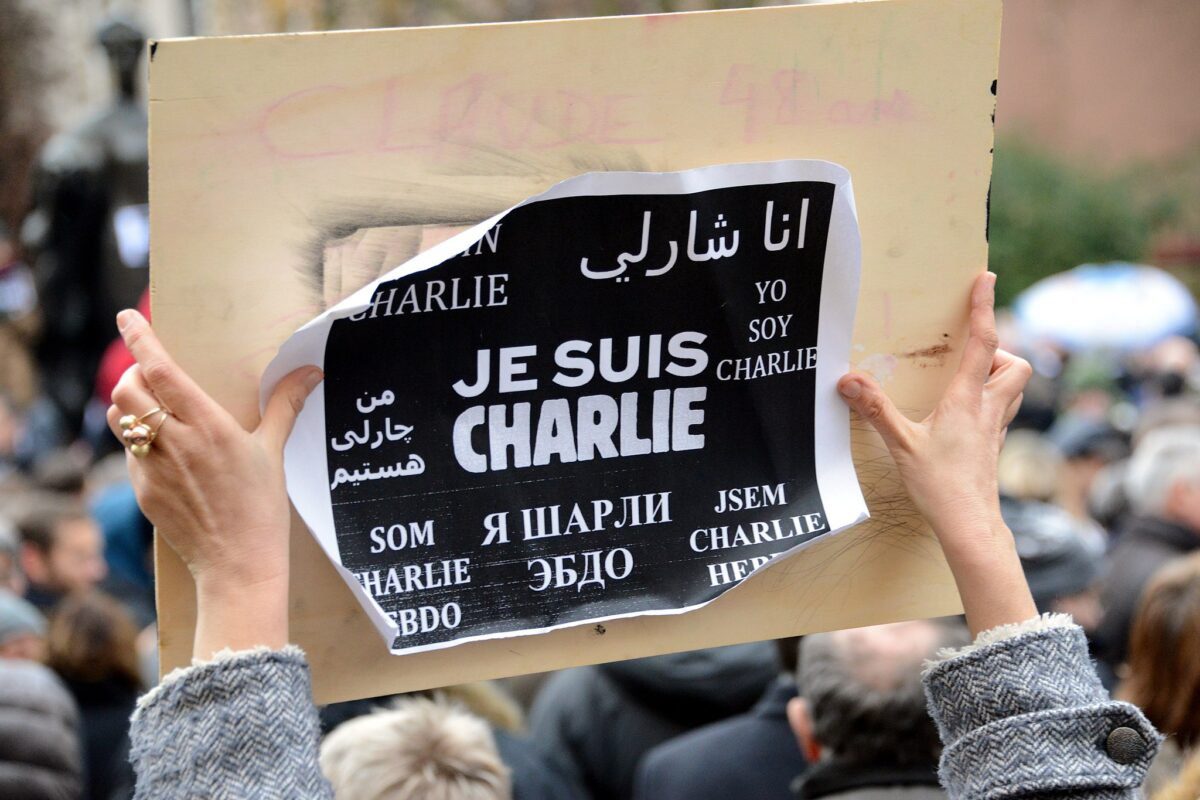 CLAUDE 48
IN
CHARLIE
انا شارلي
YO
SOY
CHARLIE
JE SUIS
CHARLIE
من
چارلی
هستیم
SOM
HARLIE
EBDO
Я ШАРЛИ
ЭБДО
JSEM
CHARLIE